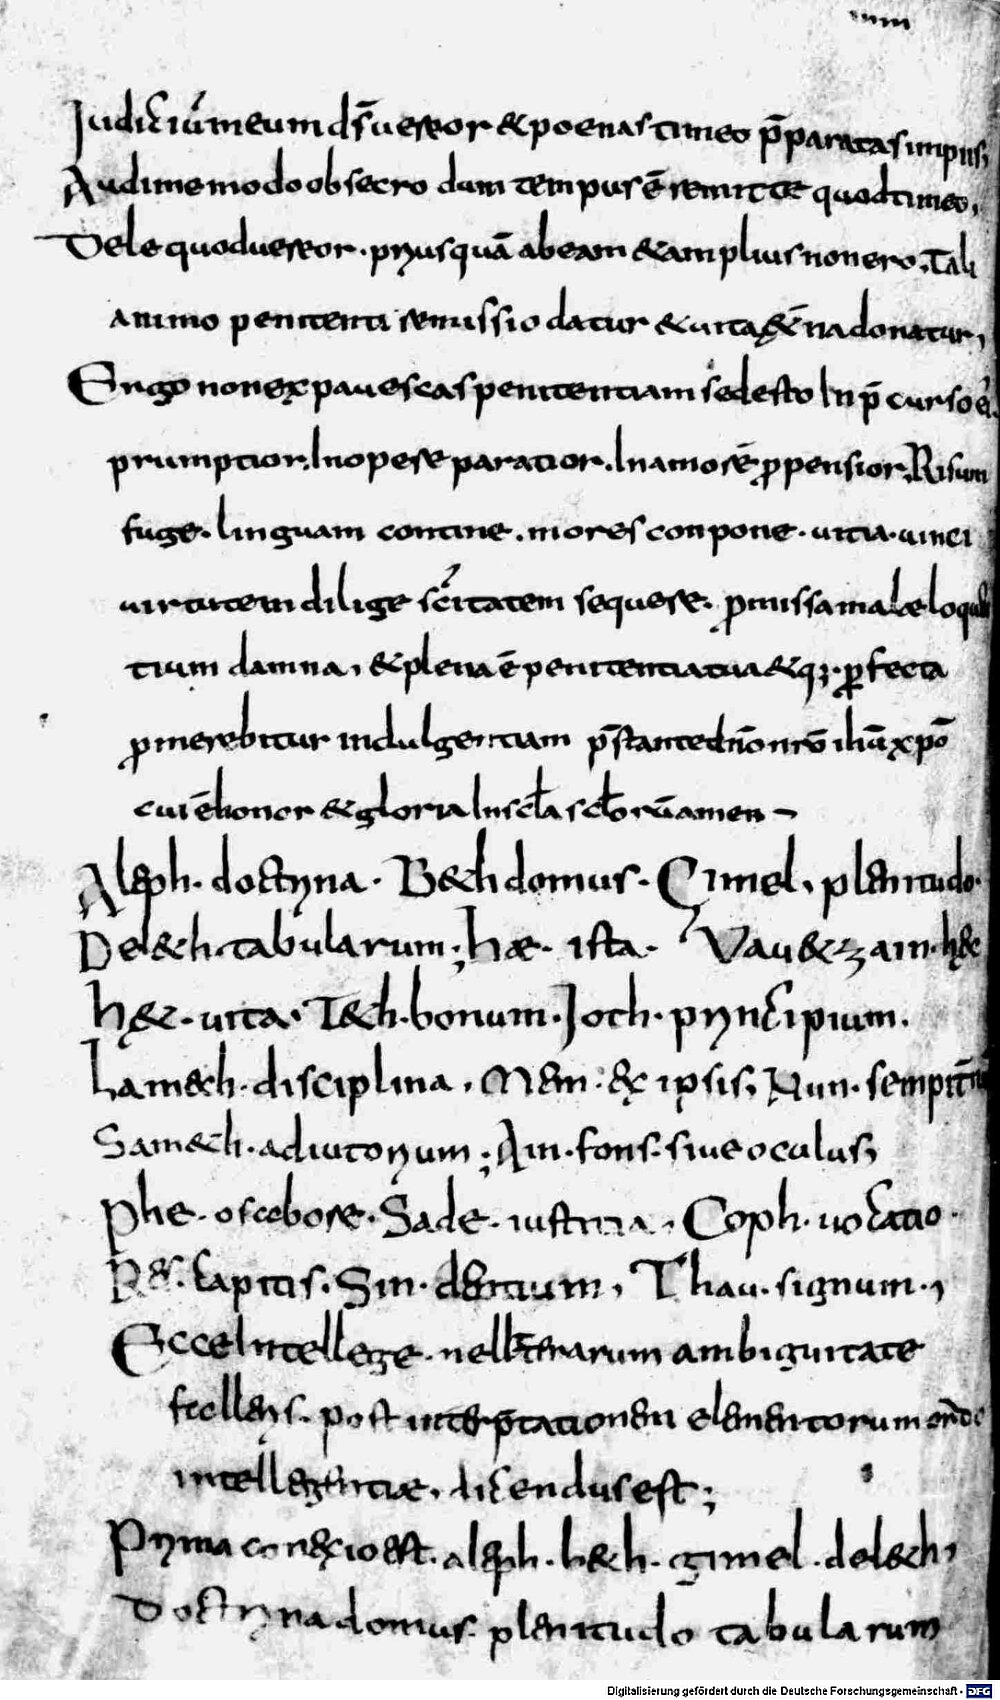 Iudiciū meum dn̄e uereor & poenas timeo p̄paratas impiis,
Audi me modo obsecro dum tempus ē remitte quod timeo,
Dele quod uereor. priusquā abeam & amplius non ero, Tali
animo penitenti remissio datur & uita & ēna donatur,
Ergo non expauescas penitentiam sed esto In p̄ curso ei.
prumptior. In opere paratior. In amore ꝓpensior, Risum
fuge. linguam contine. mores conpone. uitia. uinci
uirtutem dilige sc̄itatem sequere. ꝓmissa male loquen
tium damna, & plena ē penitentia tua & q; ꝑfecta
ꝓmerebitur indulgentiam p̄stante dn̄o nr̄o ihū xp̄o
cui ē honor & gloria In scl̄a scl̄orū amen
Aleph. doctrina. B&h domus. Gimel, plenitudo.
Del&h. tabularum; hæ. ista. Vau & zain. hęc
h&. uita. T&h. bonum. Ioth. principium.
Lamech. disciplina, Mem. ex ipsis, Nun. sempit̄nū
Sam&h. adiutorium; Ain. fons. siue oculus,
Phe. os ab ore. Sade. iustitia. Coph. uocatio.
Res. capitis. Sin. dentium, Thau. signum.,
Ecce Intellege. ne litterarum ambiguitate
fallaris. post interp̄tationem elementorum ordo
intellegentiæ, dicendus est;
Prima conexio est. aleph. b&h. gimel. del&h,
Doctrina domus. plenitudo tabularum
Digitalisierung gefördert durch die Deutsche Forschungsgemeinschaft - DFG